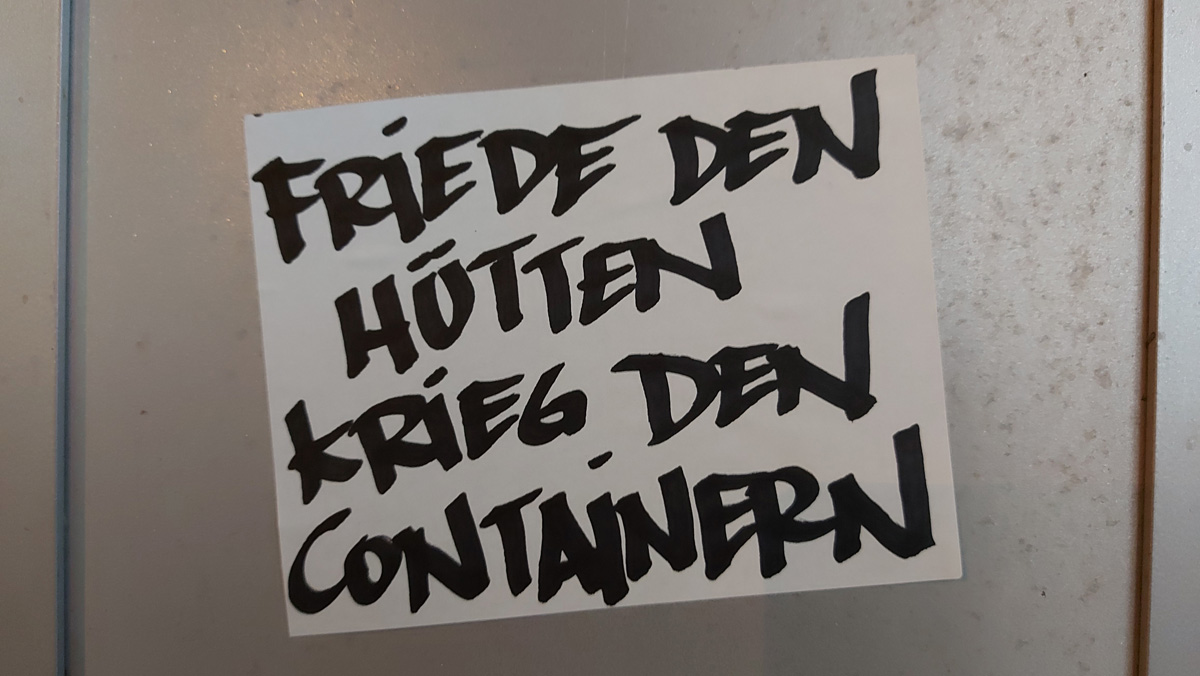 FRIEDE DEN
HÜTTEN
KRIEG DEN
CONTAINERN